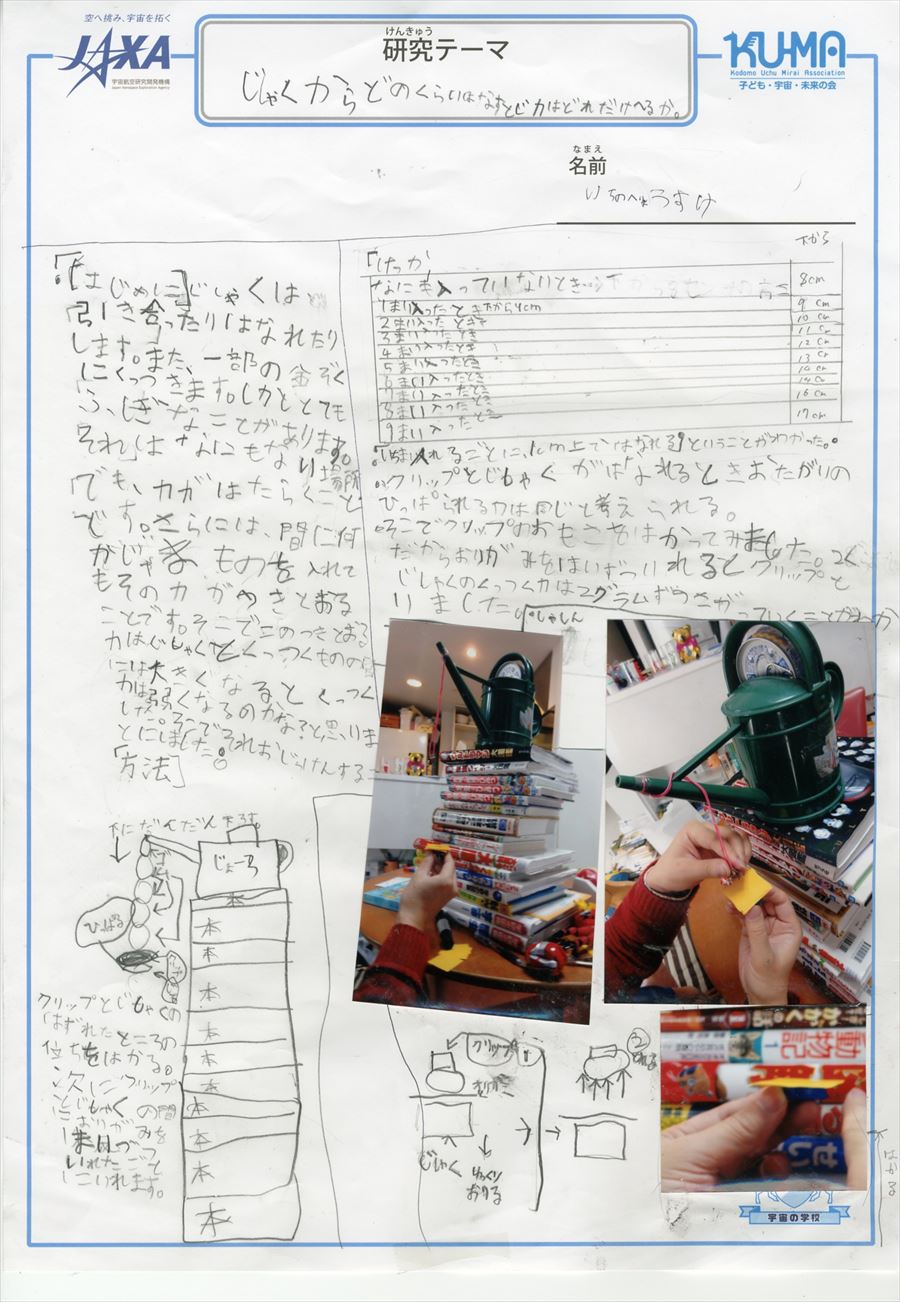 空へ挑み、宇宙を拓く
JAXA
宇宙航空研究開発機構
Japan Aerospace Exploration Agency
けんきゅう
研究テーマ
じしゃくからどのくらいはなすとじ力はどれだけへるか。
KUMA
Kodomo Uchu Mirai Association
子ども・宇宙・未来の会
なまえ
名前
「はじめに」じしゃくは
引き合ったりはなれたり
します。また、一部の金ぞく
にくっつきます。しかととても
ふしぎなことがあります。
それはなにもない場所
でも、力がはたらくこと
です。さらには、間に何
がじゃまものを入れて
もその力がつきとおる
ことです。そこでこのつきとおる
力はじしゃくとくっつくものの間
には大きくなるとくっつく
力は弱くなるのかな?と思いま
した。そこでそれおじっけんする
とにしました。
「方法」
「けっか」
下から
なにも入っていないとき
8cm
1まい入ったとき下から9cm
9cm
2まい入ったとき
10cm
3まい入ったとき
11cm
4まい入ったとき
12cm
5まい入ったとき
13cm
6まい入ったとき
14cm
7まい入ったとき
14cm
8まい入ったとき
16cm
9まい入ったとき
17cm
1まい入れるごとに、1cm上ではなれる。ということがわかった。
クリップとじしゃくがはなれるときおたがりの
ひっぱられる力は同じと考えられる。
そこでクリップのおもさをはかってみました。2く
だからおりがみをはいずついれるとクリップと
じしゃくのくっつく力は2グラムずつさがっていくことがわか
りました。
しゃしん
下にだんだんまげる。
じょーろ
本
本
本
本
本
本
本
本
本
本
ひっぱる
クリップとじしゃくの
はずれたところの
位ちをはかる。
次にクリップ
とじしゃくの間
におりがみを
1まいづつ
いれたごと
しにいれます。
クリップ
おりがみ
じしゃく
ゆっくり
おりる
1
2
とれる
かがくの話
動物記
1
せい
はかる
宇宙の学校